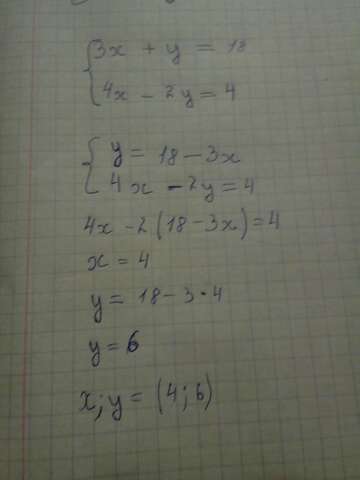 3x + y = 18
4x - 2y = 4
y = 18 - 3x
4x - 2y = 4
4x - 2(18 - 3x) = 4
x = 4
y = 18 - 3 · 4
y = 6
x; y = (4; 6)